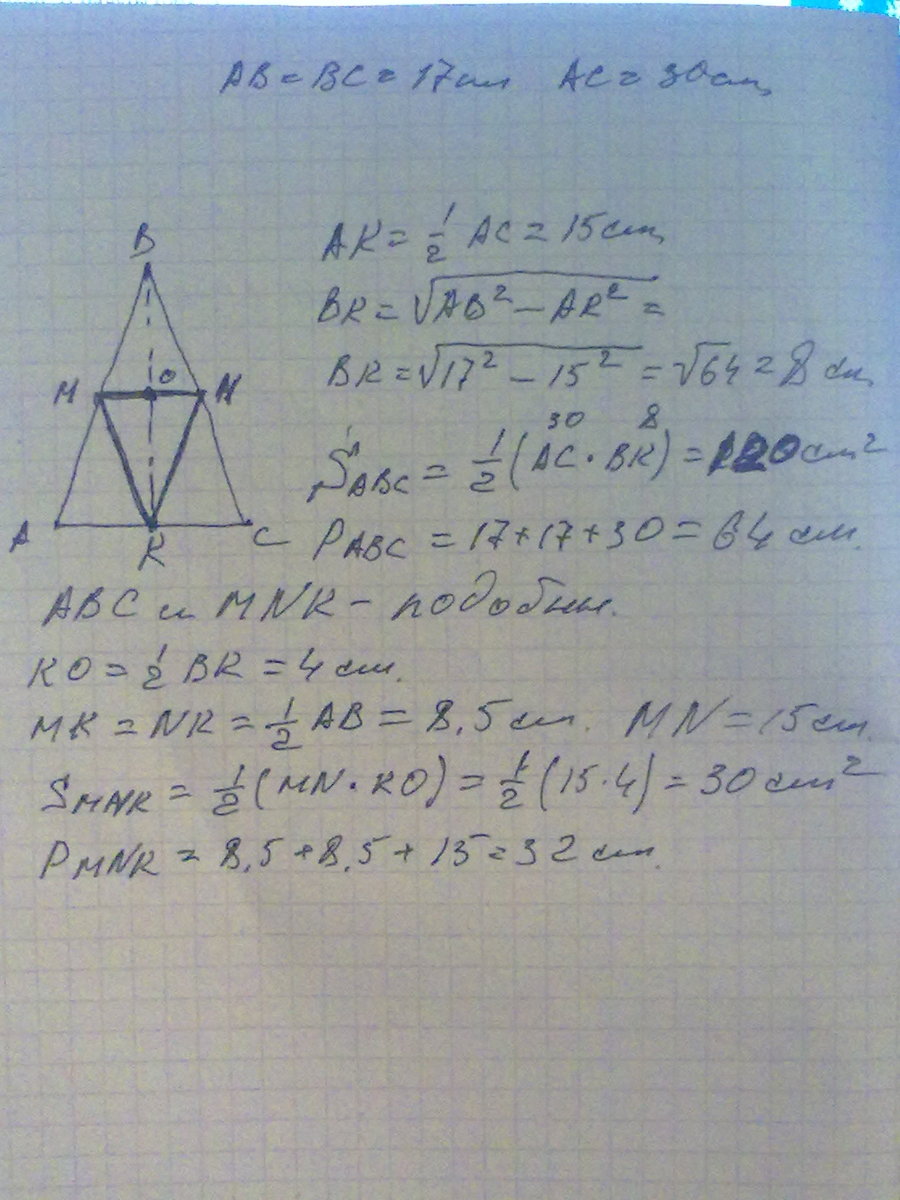 AB = BC = 17см AC = 30см
AK = 1/2 AC = 15см
BK = √(AB² - AK²) =
BK = √(17² - 15²) = √64 = 8 см
30 8
S ABC = 1/2 (AC · BK) = 120 см²
P ABC = 17+17+30 = 64 см.
B
M O N
A K C
ABC и MNK - подобны.
KO = 1/2 BK = 4 см.
MK = NK = 1/2 AB = 8,5 см. MN = 15 см.
S MNK = 1/2 (MN · KO) = 1/2 (15·4) = 30 см²
P MNK = 8,5 + 8,5 + 15 = 32 см.